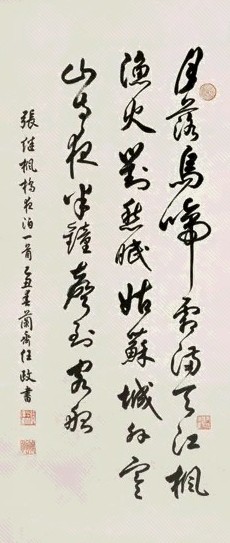 月落烏啼霜滿天江楓
漁火對愁眠姑蘇城外寒
山寺夜半鐘聲到客船
張繼楓橋夜泊一首乙丑春蘭齋任政書